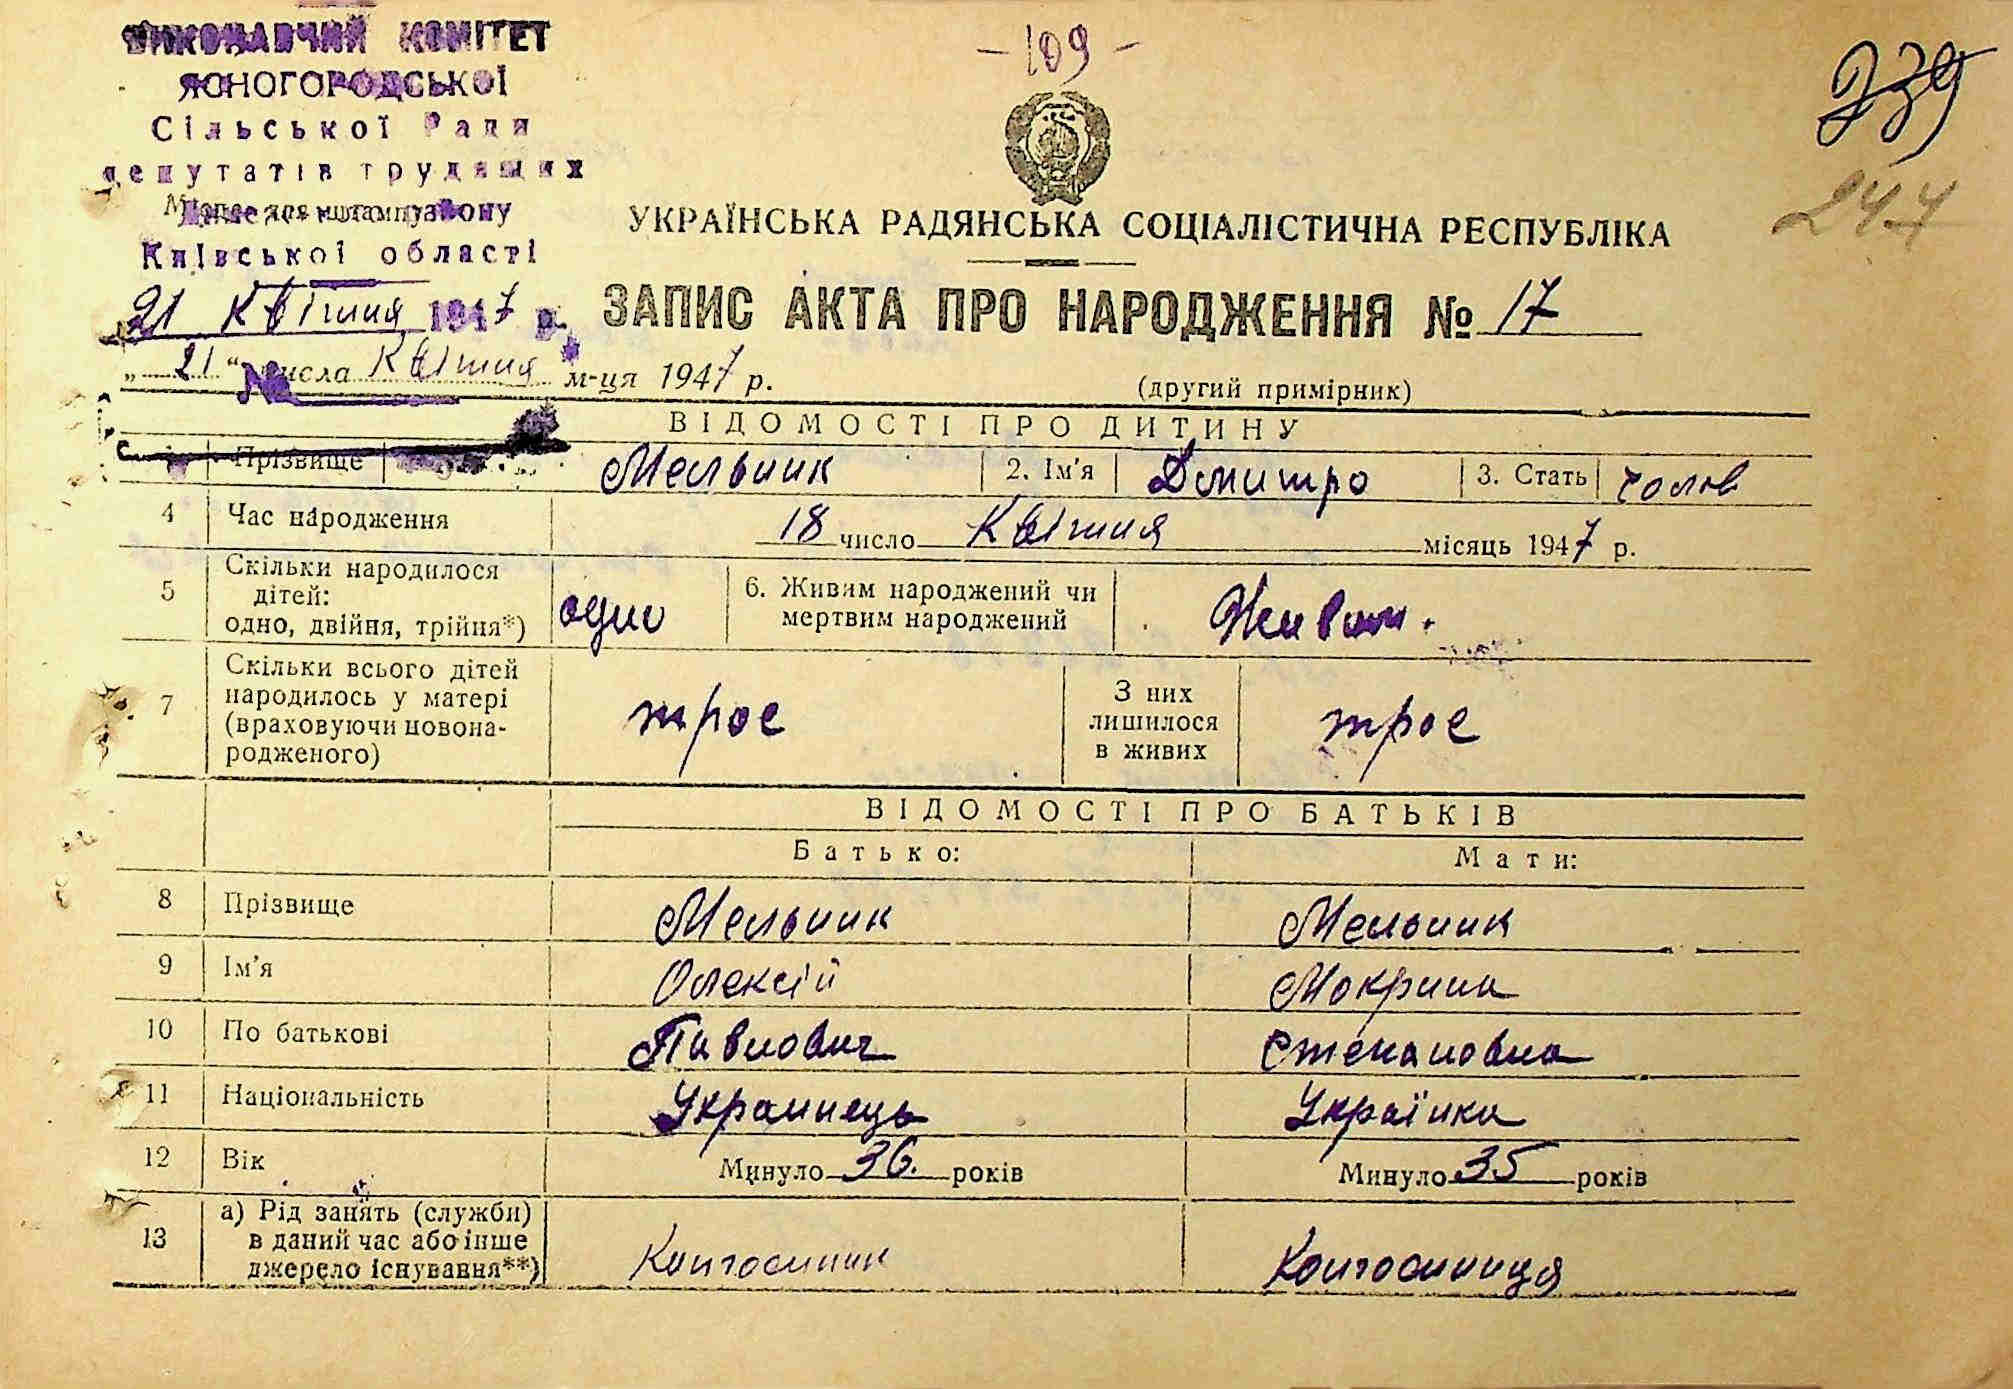 ВИКОНАВЧИЙ КОМІТЕТ
ЯСНОГОРОДСЬКОЇ
Сільської Ради
депутатів трудящих
Місце для штампу району
Київської області
21 Квітня 1947 р.
- 109 -
239
244
УКРАЇНСЬКА РАДЯНСЬКА СОЦІАЛІСТИЧНА РЕСПУБЛІКА
ЗАПИС АКТА ПРО НАРОДЖЕННЯ № 17
„ 21 “ числа Квітня м-ця 1947 р.
№
(другий примірник)
ВІДОМОСТІ ПРО ДИТИНУ
Прізвище Мельник 2. Ім'я Дмитро 3. Стать чолов
4 Час народження 18 число Квітня місяць 1947 р.
5 Скільки народилося дітей: одно, двійня, трійня*) одно 6. Живим народжений чи мертвим народжений Живим.
7 Скільки всього дітей народилось у матері (враховуючи новонародженого) троє З них лишилося в живих троє
ВІДОМОСТІ ПРО БАТЬКІВ
Батько: Мати:
8 Прізвище Мельник Мельник
9 Ім'я Олексій Мокрина
10 По батькові Павлович Степановна
11 Національність Украинець Українка
12 Вік Минуло 36. років Минуло 35 років
13 а) Рід занять (служби) в даний час або інше джерело існування**) Колгоспник Колгоспниця